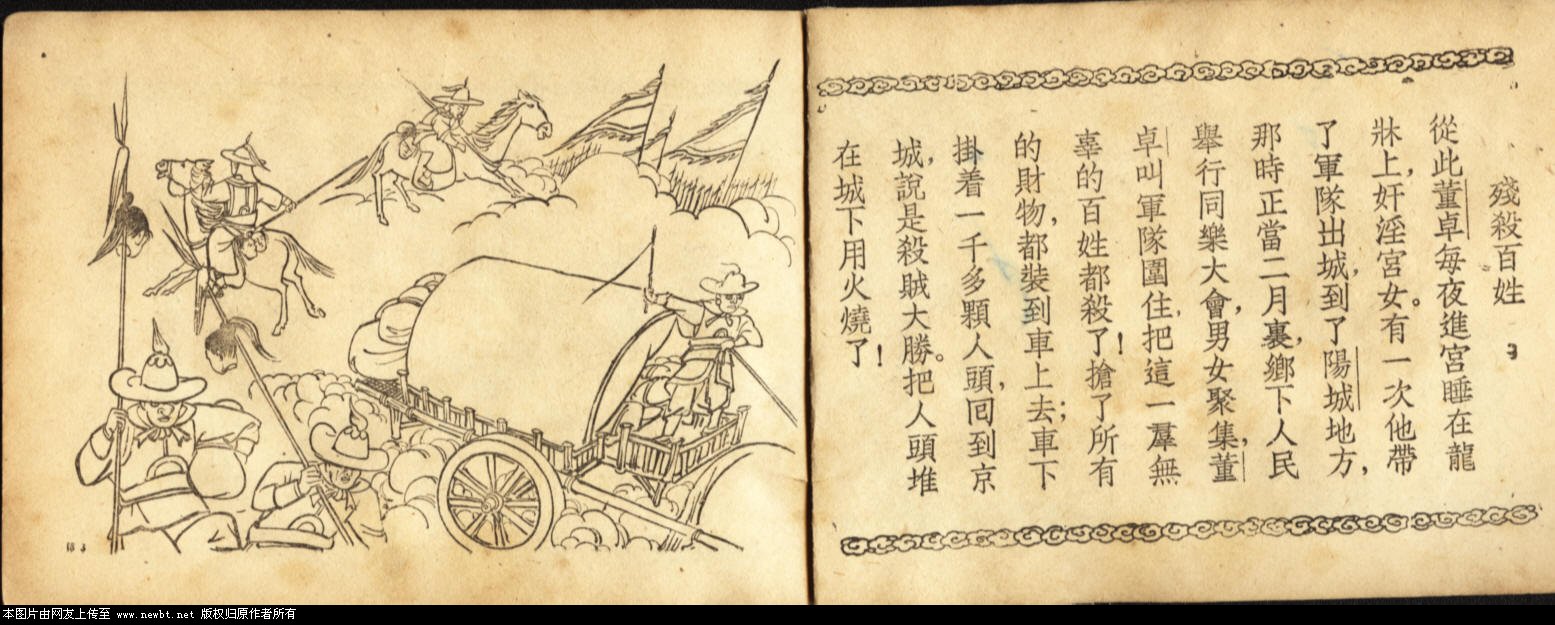 殘殺百姓
從此董卓每夜進宮睡在龍
牀上，奸淫宮女。有一次他帶
了軍隊出城，到了陽城地方，
那時正當二月裏，鄉下人民
舉行同樂大會，男女聚集，董
卓叫軍隊圍住，把這一羣無
辜的百姓都殺了！搶了所有
的財物，都裝到車上去；車下
掛着一千多顆人頭，囘到京
城，說是殺賊大勝。把人頭堆
在城下用火燒了！
本图片由网友上传至 www.newbt.net 版权归原作者所有